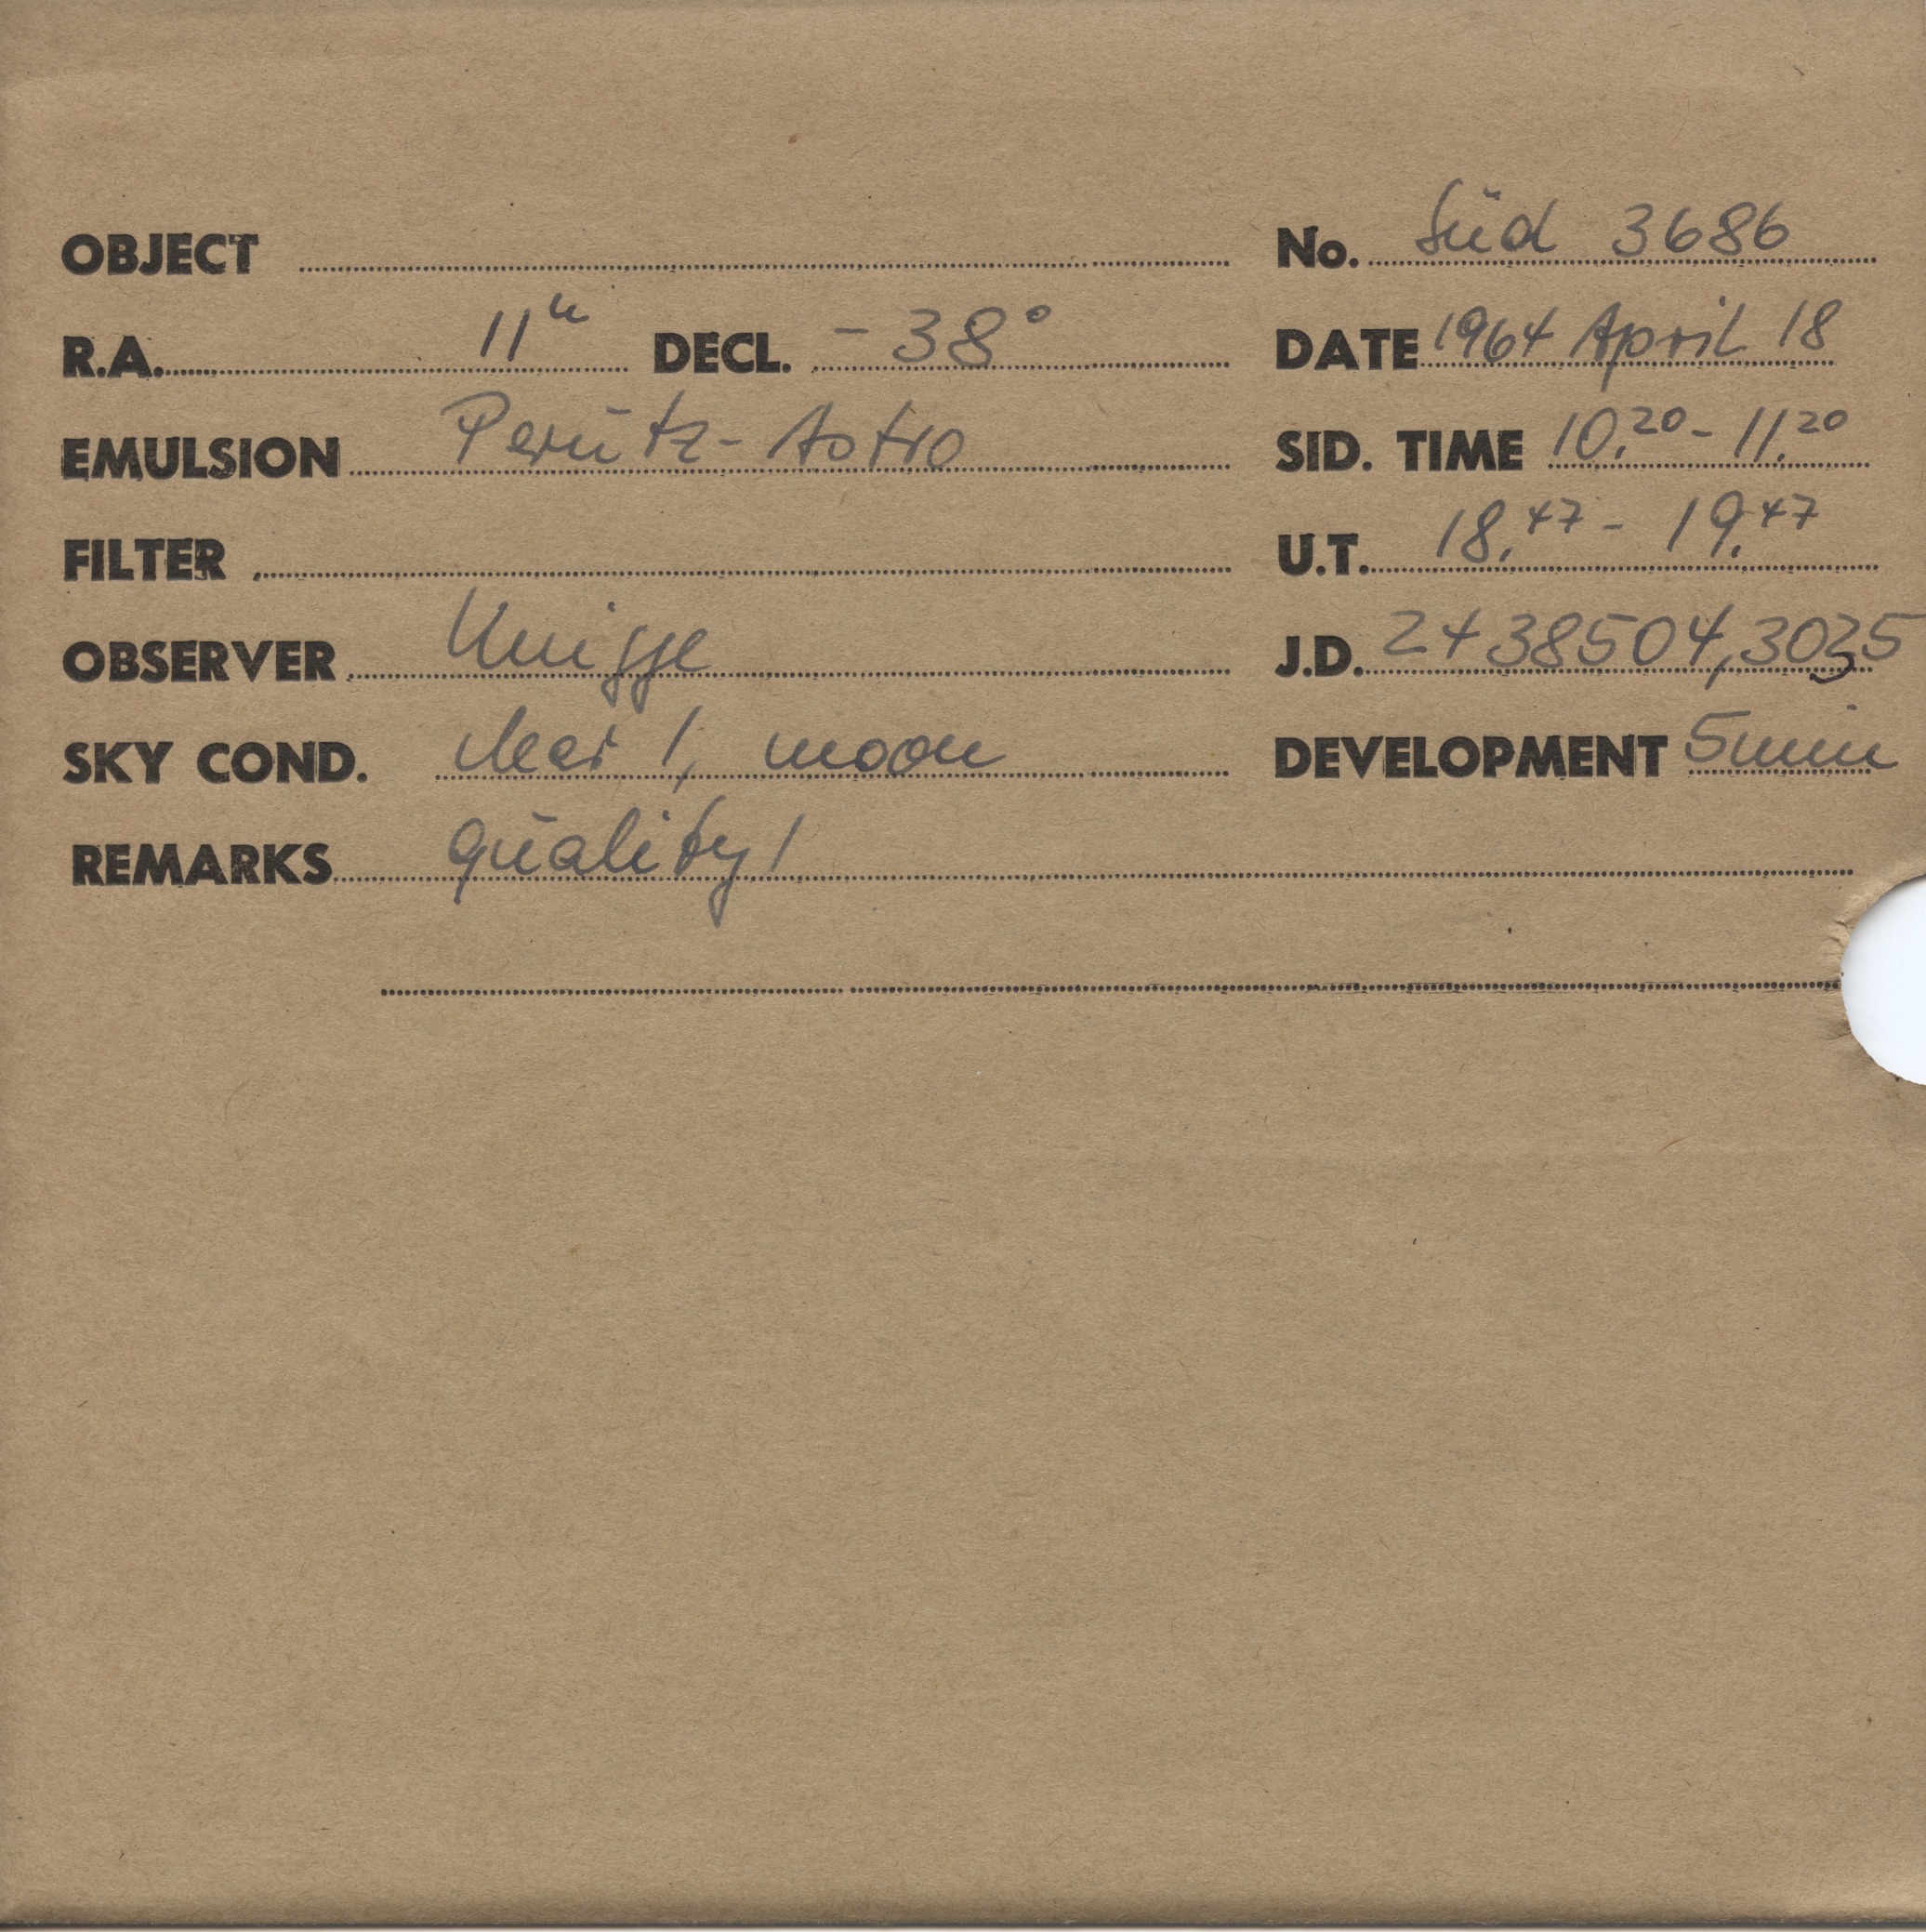 OBJECT No. Süd 3686
R.A. 11h DECL. -38° DATE 1964 April 18
EMULSION Perutz-Astro SID. TIME 10.20 - 11.20
FILTER U.T. 18.47 - 19.47
OBSERVER Knigge J.D. 2438504,3035
SKY COND. clear 1, moon DEVELOPMENT 5 min
REMARKS quality 1